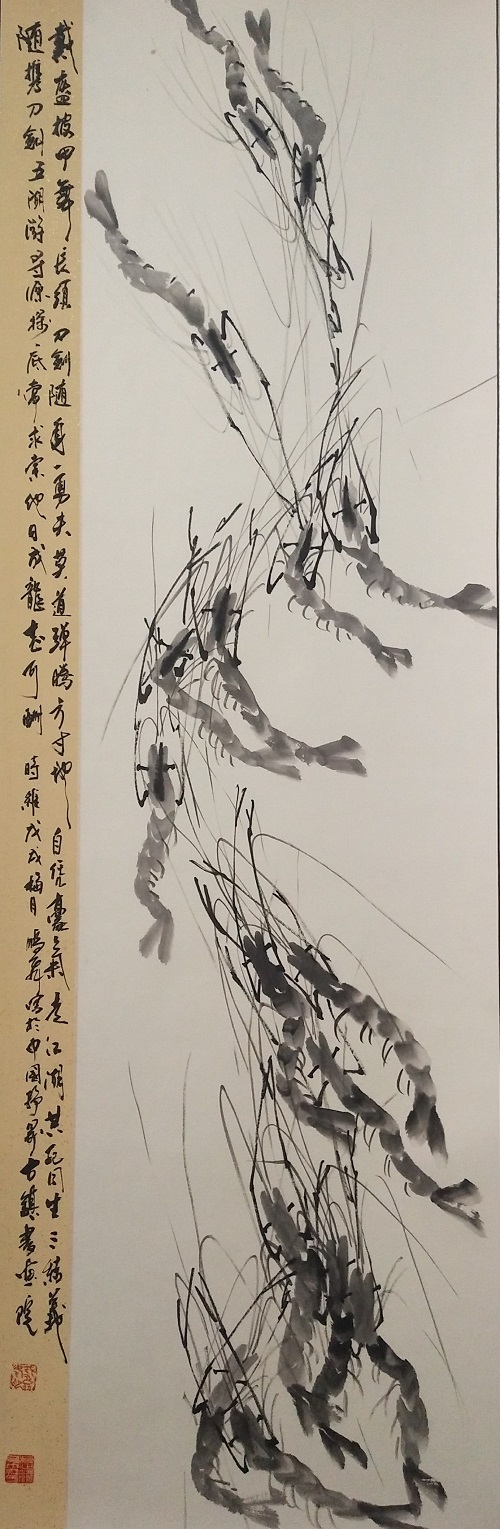 戴盔披甲舞长须刀剑随身一勇夫莫道弹腾方寸地自凭豪气走江湖共死同生三结义
随携刀剑五湖游寻源探底常求索他日成龙志可酬 時维戊戌梅月鵬飛寫於中國 古鎮書画院